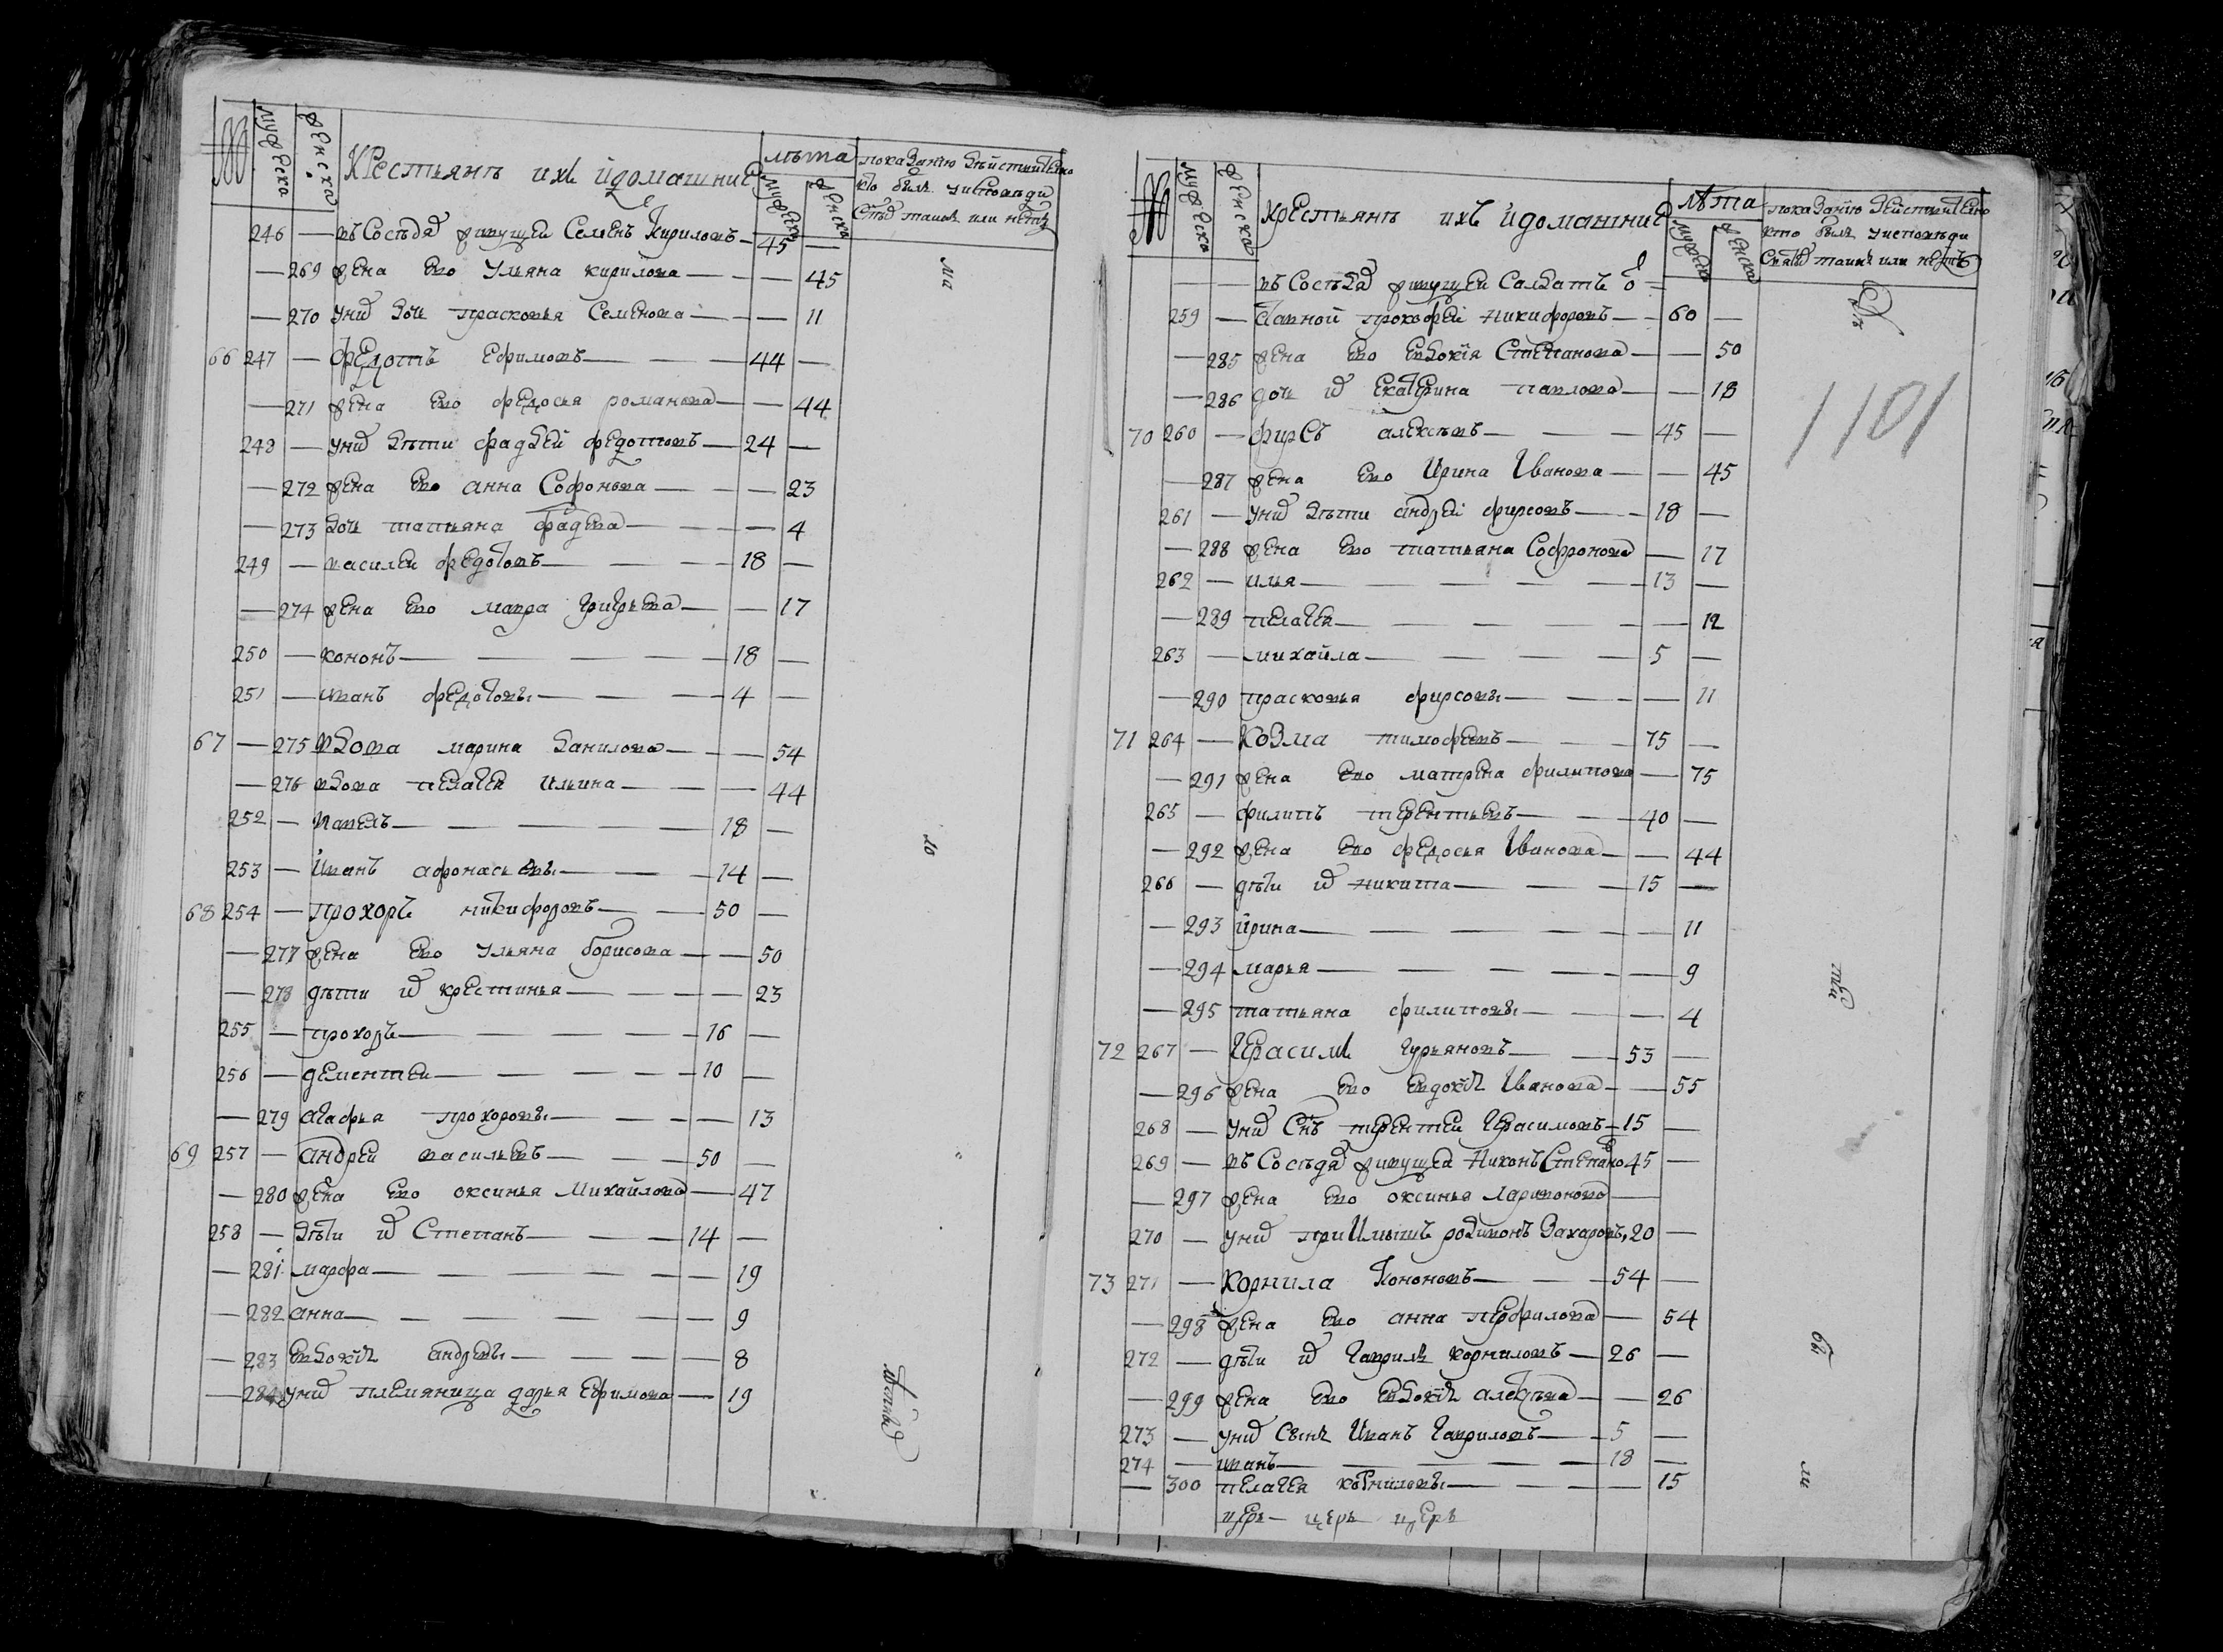 № мужеска женска Крестьянъ ихъ и домашние лѣта мужеска женска показанию действително кто былъ у исповеди святыхъ таинъ или нетъ
246 — въ Соседяхъ живущей Семенъ Кириловъ — 45 —
— 269 жена ево Ульяна кирилова — — 45
— 270 у них дочь прасковья Семенова — — 11
66 247 — федотъ ефимовъ — 44 —
— 271 жена ево федосья романова — — 44
248 — у них дѣти фаддей федотовъ — 24 —
— 272 жена ево анна Софонова — — 23
— 273 дочь татьяна фадеева — — 4
249 — василей федотовъ — 18 —
— 274 жена ево мавра григорьева — — 17
250 — кононъ — 18 —
251 — иванъ федотовы — 4 —
67 — 275 вдова марина данилова — — 54
— 276 вдова пелагея ильина — — 44
252 — павелъ — 18 —
253 — иванъ афонасьевы — 14 —
68 254 — прохоръ никифоровъ — 50 —
— 277 жена ево ульяна борисова — — 50
— 278 дѣти их крестинья — — 23
255 — прохоръ — 16 —
256 — дементей — 10 —
— 279 агафья прохоровы — — 13
69 257 — андрей васильевъ — 50 —
— 280 жена ево оксинья михайлова — 47
258 — дѣти их Степанъ — 14 —
— 281 марфа — — 19
— 282 анна — — 9
— 283 евдокия андреевы — — 8
— 284 у них племяница дарья ефимова — 19
№ мужеска женска Крестьянъ ихъ и домашние лѣта мужеска женска показанию действително кто былъ у исповеди святыхъ таинъ или нетъ
— — въ Соседяхъ живущей Салдатъ о
259 — ставной прокофей никифоровъ — 60 —
— 285 жена ево евдокия Степанова — — 50
— 286 дочь их екатерина павлова — — 18
1101
70 260 — фирсъ алексеевъ — 45 —
— 287 жена ево Ирина Иванова — — 45
261 — у них дѣти андрей фирсовъ — 18 —
— 288 жена ево татьяна Софронова — 17
262 — илья — 13 —
— 289 пелагея — — 12
263 — михайла — 5 —
— 290 прасковья фирсовы — — 11
71 264 — козма тимофеевъ — 75 —
— 291 жена ево матрена филипова — 75
265 — филипъ терентьевъ — 40 —
— 292 жена ево федосья Иванова — — 44
266 — дѣти их никита — 15 —
— 293 ирина — — 11
— 294 марья — — 9
— 295 татьяна филиповы — — 4
72 267 — Герасимъ гурьяновъ — 53 —
— 296 жена ево евдокия Иванова — — 55
268 — у них Снъ терентей Герасимовъ — 15 —
269 — въ Соседяхъ живущей никонъ Степано 45 —
— 297 жена ево оксинья ларионова —
270 — у них приимышъ родионъ Захаровъ, 20 —
73 271 — корнила Кононовъ — 54 —
— 298 жена ево анна перфилова — 54
272 — дѣти их гаврила корниловъ — 26 —
— 299 жена ево евдокия алексеева — — 26
273 — у них Сынъ Иванъ гавриловъ — 5 —
274 — иванъ — 18 —
— 300 пелагея корниловы — — 15
церь — церь церь